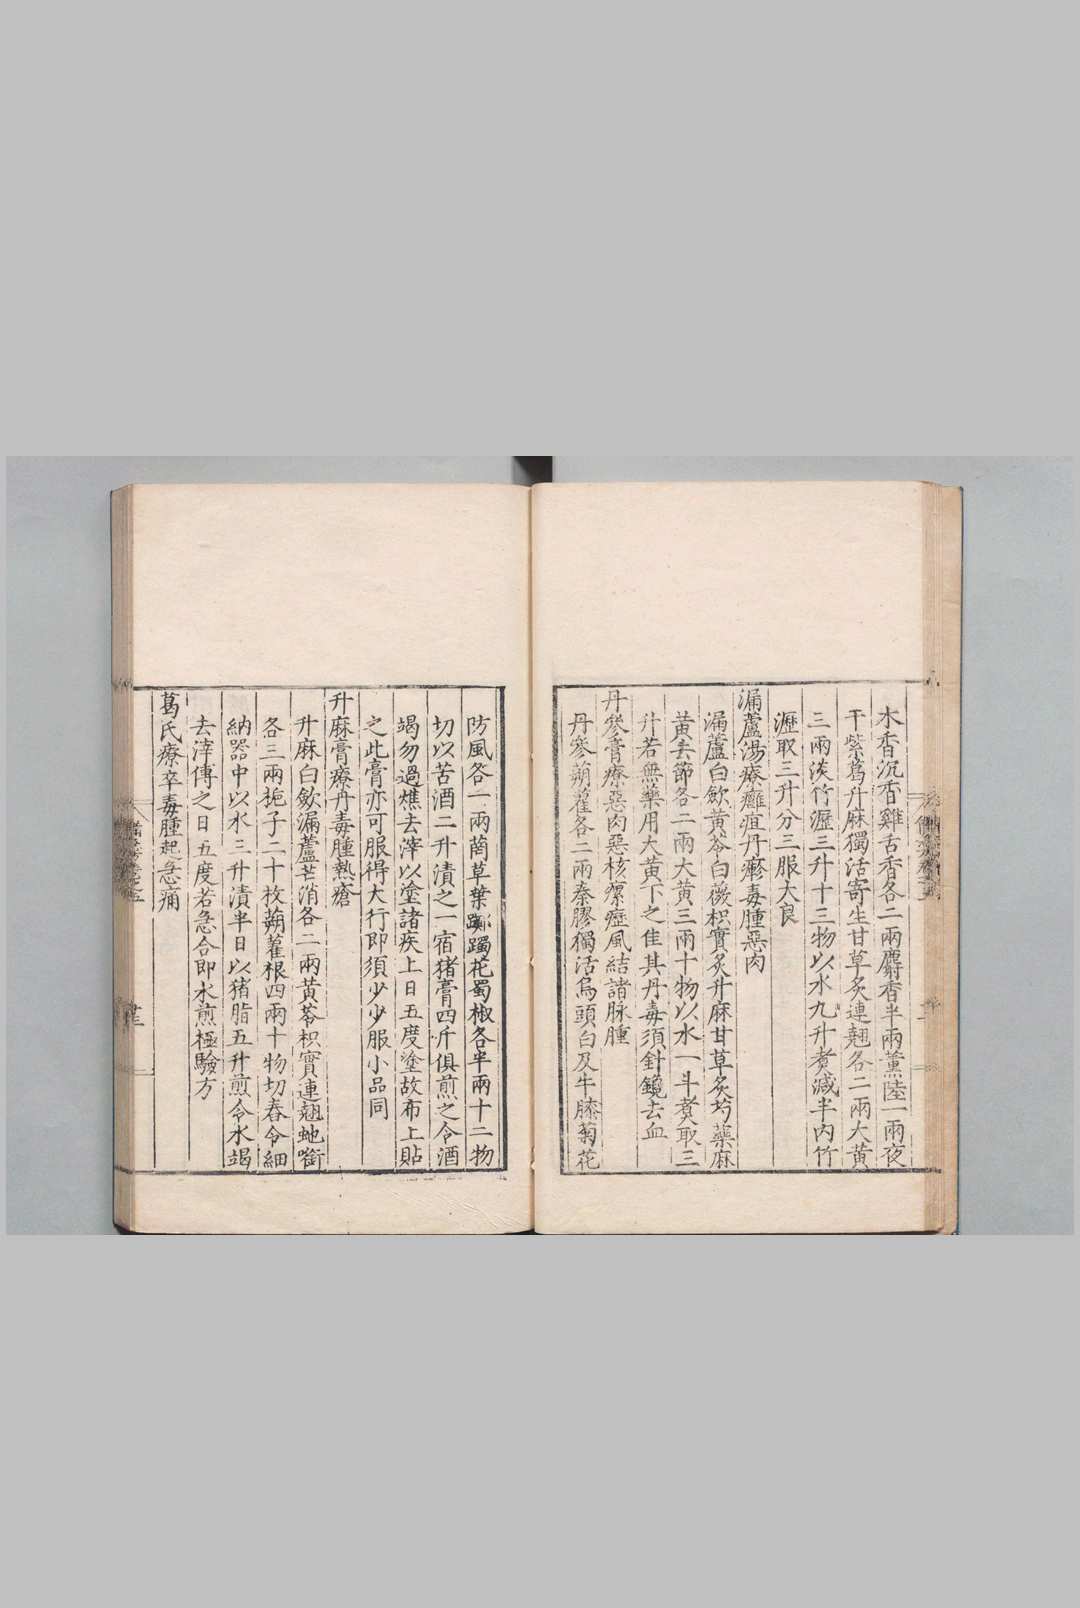 木香沉香雞舌香各二兩麝香半兩薰陸一兩夜
干紫葛升麻獨活寄生甘草炙連翹各二兩大黃
三兩淡竹瀝三升十三物以水九升煮減半內竹
瀝取三升分三服大良
漏蘆湯療癰疽丹癬毒腫惡肉
漏蘆白歛黃芩白薇枳實炙升麻甘草炙芍藥麻
黃去節各二兩大黃三兩十物以水一斗煮取三
升若無藥用大黃下之佳其丹毒須針鑱去血
丹參膏療惡肉惡核瘰癧風結諸脉腫
丹參蒴藋各二兩秦膠獨活烏頭白及牛膝菊花
防風各一兩䒽草葉躑躅花蜀椒各半兩十二物
切以苦酒二升漬之一宿猪膏四斤俱煎之令酒
竭勿過燋去滓以塗諸疾上日五度塗故布上貼
之此膏亦可服得大行即須少少服小品同
升麻膏療丹毒腫熱瘡
升麻白歛漏蘆芒消各二兩黃芩枳實連翹虵啣
各三兩梔子二十枚蒴藋根四兩十物切舂令細
納器中以水三升漬半日以猪脂五升煎令水竭
去滓傅之日五度若急合即水煎極驗方
葛氏療卒毒腫起急痛